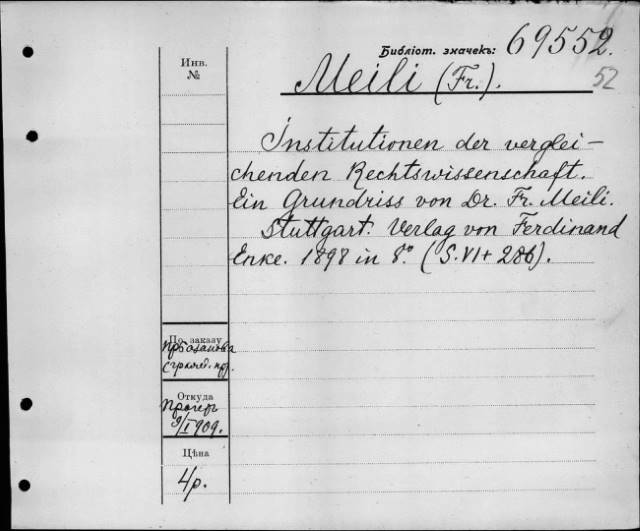 Библіот. значекъ: 69552.
52
Инв.
№
Meili (Fr.).
Institutionen der verglei-
chenden Rechtswissenschaft.
Ein Grundriss von Dr. Fr. Meili.
Stuttgart. Verlag von Ferdinand
Enke. 1898 in 8º. (S. VI + 286).
По заказу
Откуда
9/I 909.
Цѣна
4р.